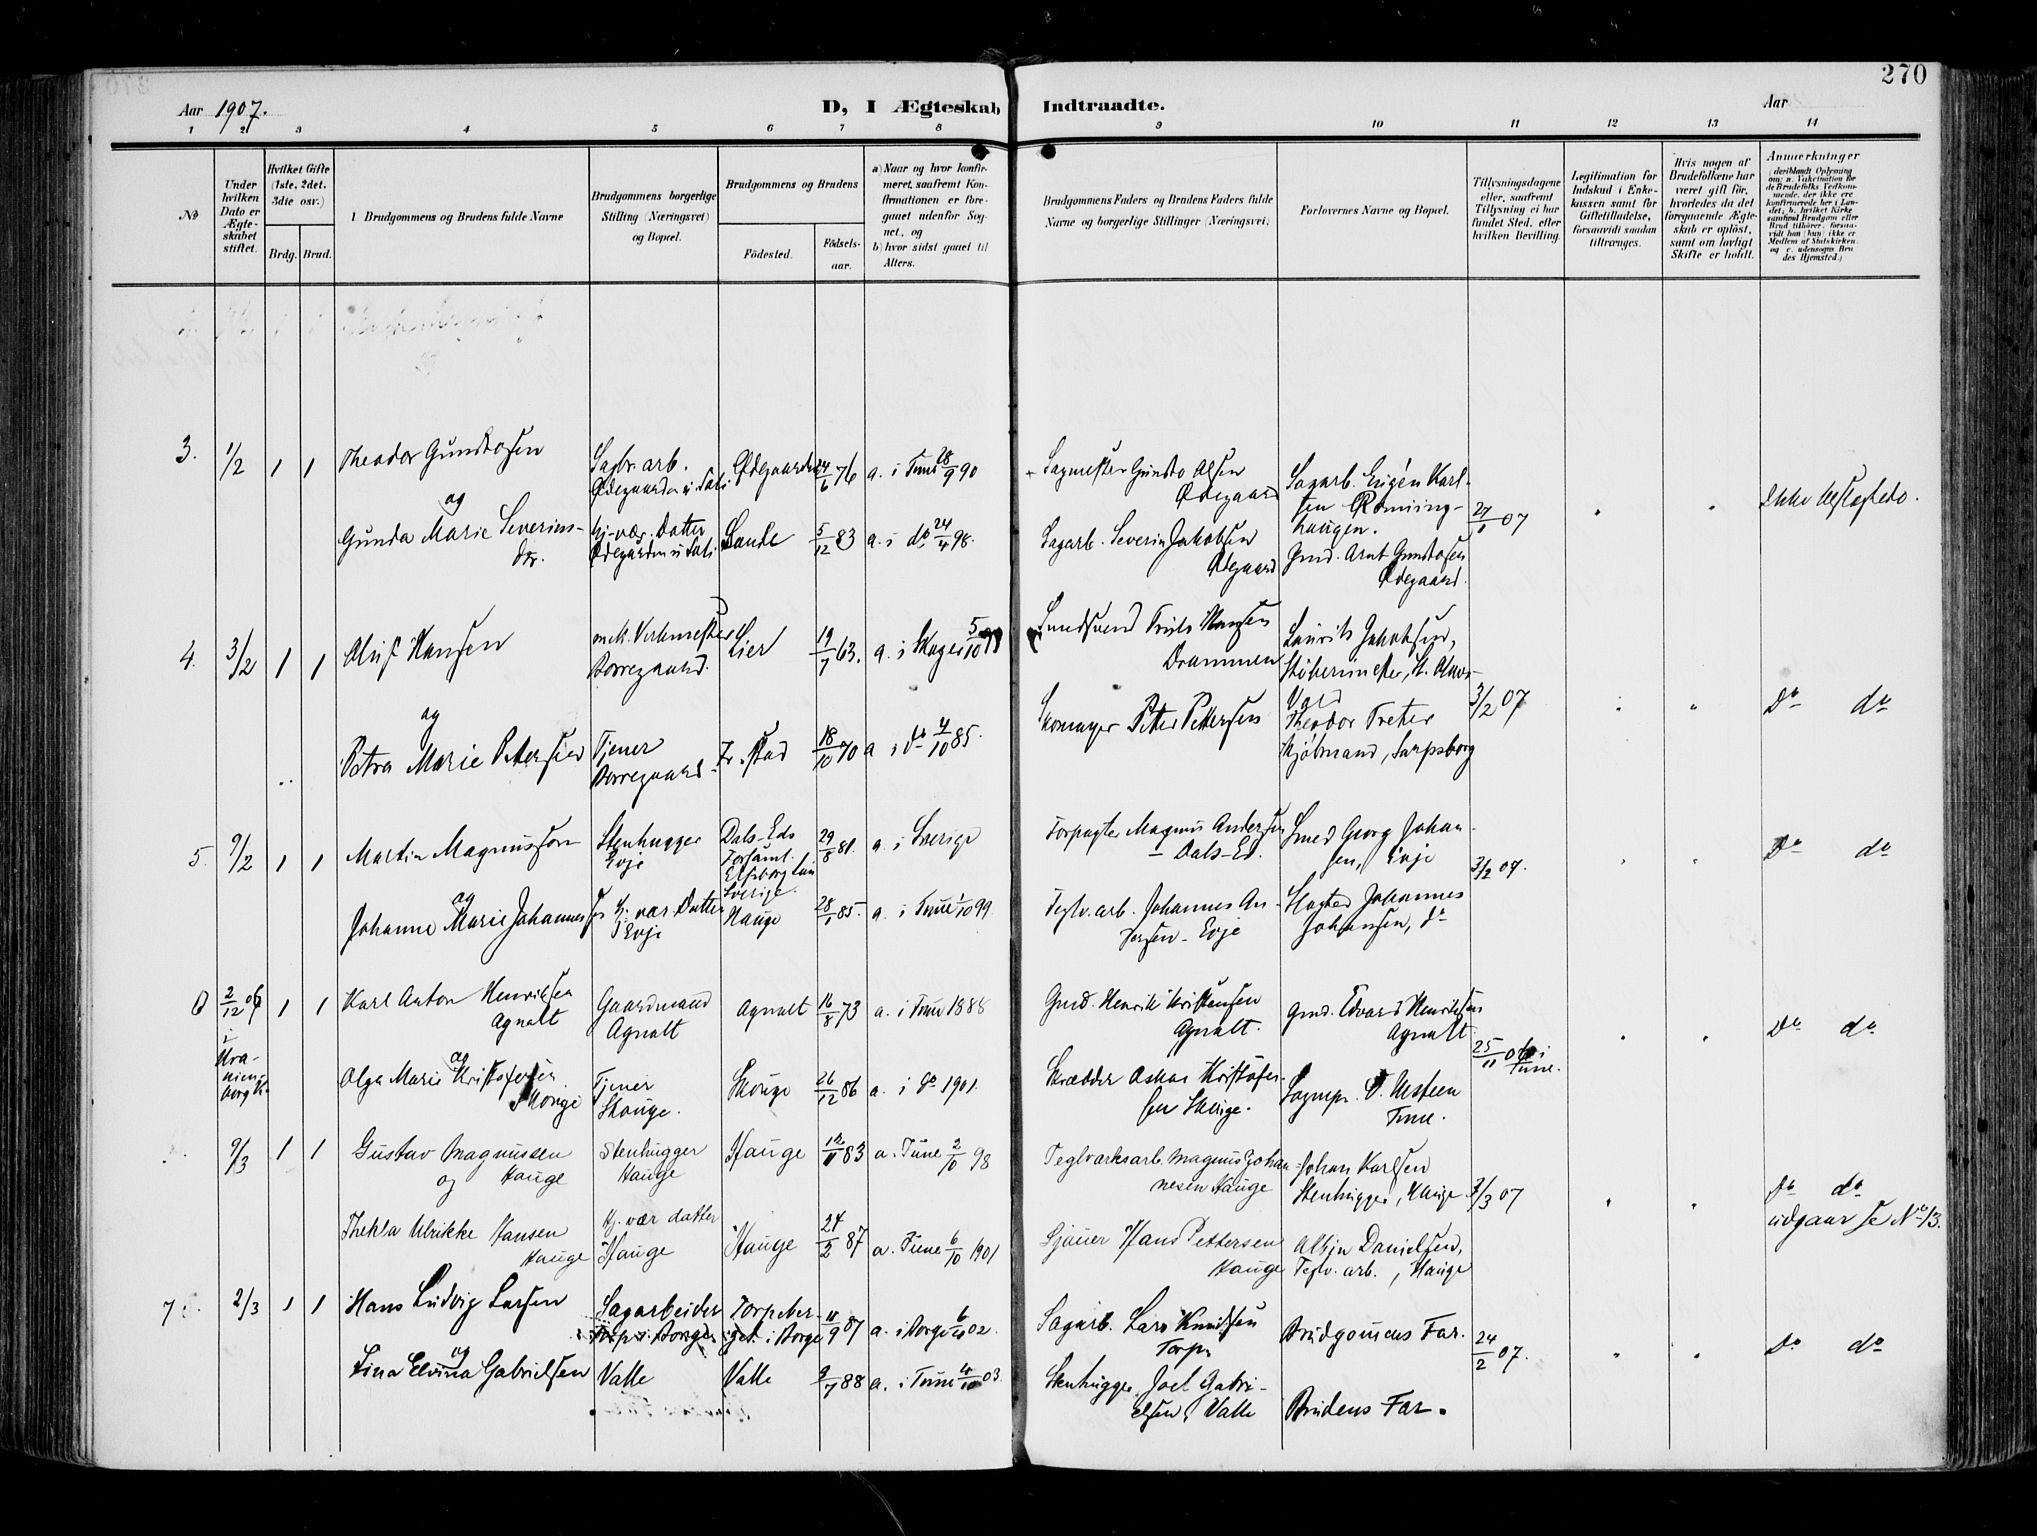 270
Aar 1907.
D, I Ægteskab Indtraadte.
Aar
1 2 3 4 5 6 7 8 9 10 11 12 13 14
No
Under hvilken Dato er Ægteskabet stiftet.
Hvilket Gifte (1ste, 2det, 3die osv.)
Brdg. Brud.
Brudgommens og Brudens fulde Navne
Brudgommens borgerlige Stilling (Næringsvei) og Bopæl.
Brudgommens og Brudens
Födested.
Födsels-aar.
a) Naar og hvor konfirmeret, saafremt Konfirmationen er foregaaet udenfor Sognet, og
b) hvor sidst gaaet til Alters.
Brudgommens Faders og Brudens Faders fulde Navne og borgerlige Stillinger (Næringsvei).
Forlovernes Navne og Bopæl.
Tillysningsdagene eller, saafremt Tillysning ei har fundet Sted, efter hvilken Bevilling.
Legitimation for Indskud i Enkekassen samt for Giftetilladelse, forsaavidt saadan tiltrænges.
Hvis nogen af Brudefolkene har været gift før, hvorledes da det foregaaende Ægteskab er opløst, samt om lovligt Skifte er holdt.
Anmerkninger
3. 1/2 1 1 Theodor Gundtofsen
Sagbr. arb.
24/6 76 a. i Tune 28/9 90
Ødegaard
Sagarb. Eugén Karlsen
27/1 07
Ikke beslægtede.
og
Gunda Marie Severinsdtr.
Hj. vær. Datter
Sande 5/12 83 a. i do 24/4 98.
Sagarb. Severin Jakobsen
Ødegaard
Gmd. Arnt Gundtofsen
Ødegaard.
4. 3/2 1 1 Oluf Hansen
mek. Verkmester
Borregaard.
Lier 19/7 63. a. i
Truls Hansen
Drammen
Laurits Jakobsen,
3/2 07
Do do
og
Petra Marie Petersen
Tjener
Borregaard
Fr.stad 18/10 70 a i do 4/10 85.
Skomager Petter Pettersen
Theodor Treter
Kjøbmand, Sarpsborg
5. 9/2 1 1 Martin Magnusson
Stenhugger
Evje
Dals-Eds
Forsaml.
Elfsborg län
Sverige.
29/8 81. a. i Sverige
Forpagter Magnus Andersen
— Dals-Ed.
Smed Georg Johansen, Evje
3/2 07.
Do do
og
Johanne Marie Johannesen
Hj. vær Datter
Evje
Hauge 28/1 85. a. i Tune 1/10 99
Teglv. arb. Johannes Andersen - Evje
Johannes
Johansen, do
2/12 06 i
Uranienborg K.
1 1 Karl Anton Henriksen
Agnalt
Gaardmand
Agnalt
Agnalt 16/8 73 a. i Tune 1888
Gmd. Henrik Kristensen
Agnalt.
Gmd. Edvard Henriksen
Agnalt
25/11 06 i
Tune.
Do do
og
Olga Marie Kristofersen
Skouge
Tjener
Skouge.
Skouge 26/12 86 a. i do 1901.
Skrædder Oskar Kristofersen Skouge.
Tune.
9/3 1 1 Gustav Magnussen
og Hauge
Stenhugger
Hauge
Hauge 83 a. Tune 2/10 98
Teglværksarb. Magnus Johannesen Hauge
Johan Karlsen
Stenhugger, Hauge
3/3 07
Do do
udgaar se No 13.
Thekla Ulrikke Hansen
Hauge
Hj. vær datter
Hauge
Hauge 24/2 87 a. Tune 6/10 1901
Sjauer Hans Pettersen
Hauge
Albin Danielsen,
Teglv. arb., Hauge
7. 2/3 1 1 Hans Ludvig Larsen
Sagarbeider
Torp i Borge
Torpeberget i Borge
11/9 87 a. i Borge 6/10 02.
Sagarb. Lars Knudsen
Torp
Brudgomens Far.
24/2 07.
Do do
og
Lina Elvina Gabrielsen
Valle
Valle 9/7 88 a. i Tune 4/10 03.
Stenhugger Joel Gabrielsen, Valle
Brudens Far.